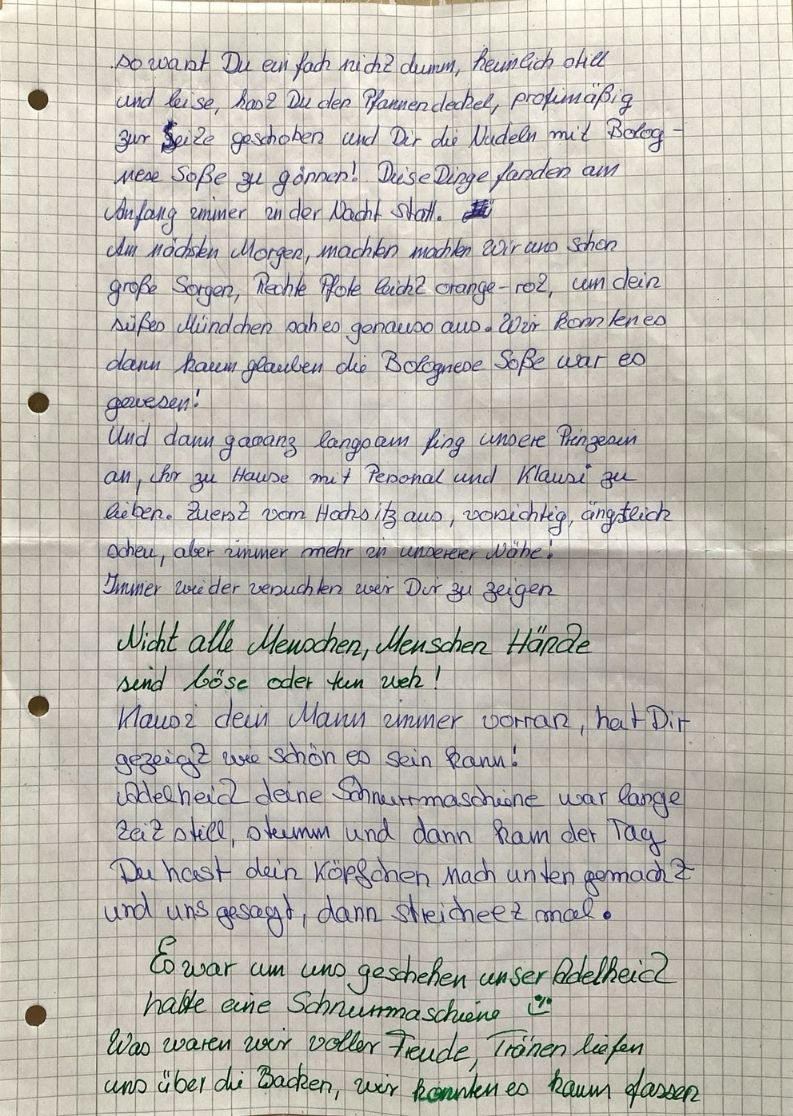 so warst Du einfach nicht dumm, heimlich still
und leise, hast Du den Pfannendeckel, profimäßig
zur Seite geschoben und Dir die Nudeln mit Bolog-
nese Soße zu gönnen! Diese Dinge fanden am
Anfang immer in der Nacht statt.
Am nächsten Morgen, machten machten wir uns schon
große Sorgen, Rechte Pfote leicht orange-rot, um dein
süßes Mündchen sah es genauso aus. Wir konnten es
dann kaum glauben die Bolognese Soße war es
gewesen!
Und dann gaaanz langsam fing unsere Prinzessin
an, ihr zu Hause mit Personal und Klausi zu
lieben. Zuerst vom Hochsitz aus, vorsichtig, ängstlich
scheu, aber immer mehr in unserer Nähe!
Immer wieder versuchten wir Dir zu zeigen
Nicht alle Menschen, Menschen Hände
sind böse oder tun weh!
Klausi dein Mann immer vorran, hat Dir
gezeigt wie schön es sein kann!
Adelheid deine Schnurrmaschine war lange
Zeit still, stumm und dann kam der Tag
Du hast dein Köpfchen nach unten gemacht
und uns gesagt, dann streichelt mal.
Es war um uns geschehen unser Adelheid
hatte eine Schnurrmaschine
Was waren wir voller Freude, Tränen liefen
uns über die Backen, wir konnten es kaum fassen